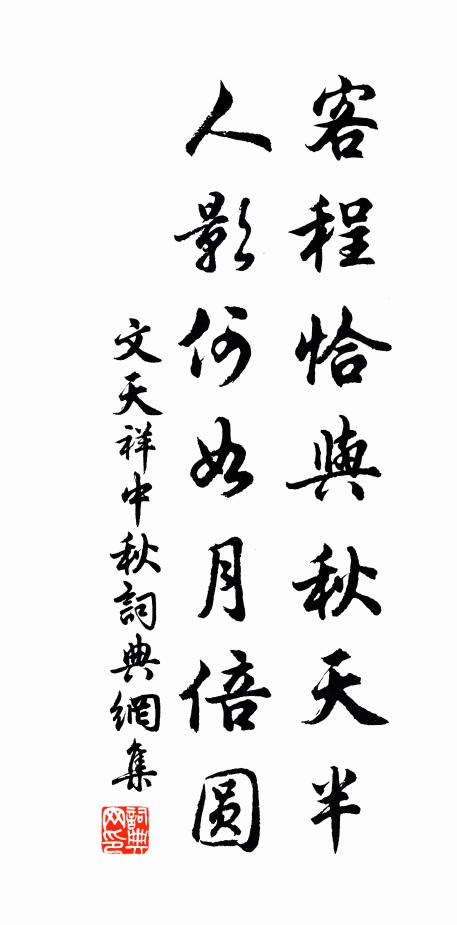 客程恰與秋天半
人影何如月倍圓
文天祥中秋詞典網集
詞典网印